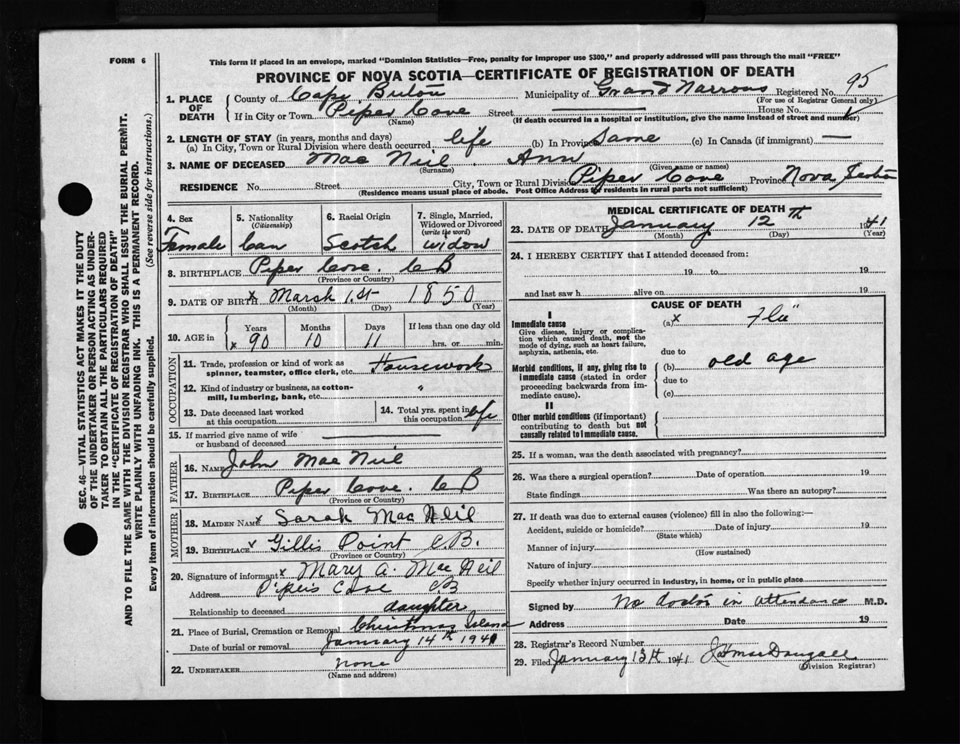 FORM 6
This form if placed in an envelope, marked "Dominion Statistics—Free, penalty for improper use $300," and properly addressed will pass through the mail "FREE"
PROVINCE OF NOVA SCOTIA—CERTIFICATE OF REGISTRATION OF DEATH
95
1. PLACE OF DEATH
County of Cape Breton Municipality of Grand Narrows Registered No.
(For use of Registrar General only)
If in City or Town Piper Cove Street House No.
(Name) (If death occurred in a hospital or institution, give the name instead of street and number)
2. LENGTH OF STAY (in years, months and days)
(a) In City, Town or Rural Division where death occurred life (b) In Province Same (c) In Canada (if immigrant) —
3. NAME OF DECEASED Mac Neil Ann
(Surname) (Given name or names)
RESIDENCE No. Street City, Town or Rural Division Piper Cove Province Nova Scotia
(Residence means usual place of abode. Post Office Address for residents in rural parts not sufficient)
SEC. 46—VITAL STATISTICS ACT MAKES IT THE DUTY
OF THE UNDERTAKER OR PERSON ACTING AS UNDER-
TAKER TO OBTAIN ALL THE PARTICULARS REQUIRED
IN THE "CERTIFICATE OF REGISTRATION OF DEATH"
AND TO FILE THE SAME WITH THE DIVISION REGISTRAR WHO SHALL ISSUE THE BURIAL PERMIT.
WRITE PLAINLY WITH UNFADING INK. THIS IS A PERMANENT RECORD.
Every item of information should be carefully supplied. (See reverse side for instructions.)
4. Sex 5. Nationality 6. Racial Origin 7. Single, Married,
(Citizenship) Widowed or Divorced
(write the word)
Female Can Scotch widow
8. BIRTHPLACE Piper Cove. CB
(Province or Country)
9. DATE OF BIRTH x March 1st 1850
(Month) (Day) (Year)
10. AGE in Years Months Days If less than one day old
x 90 10 11 hrs. or min.
OCCUPATION
11. Trade, profession or kind of work as
spinner, teamster, office clerk, etc. Housework
12. Kind of industry or business, as cotton-
mill, lumbering, bank, etc. "
13. Date deceased last worked
at this occupation
14. Total yrs. spent in
this occupation life
15. If married give name of wife
or husband of deceased
FATHER
16. NAME John Mac Neil
17. BIRTHPLACE Piper Cove. CB
(Province or Country)
MOTHER
18. MAIDEN NAME x Sarah Mac Neil
19. BIRTHPLACE x Gillis Point C.B.
(Province or Country)
20. Signature of informant x Mary A. Mac Neil
Address Pipers Cove CB
Relationship to deceased daughter
21. Place of Burial, Cremation or Removal Christmas Island
Date of burial or removal January 14th 1941
22. UNDERTAKER none
(Name and address)
MEDICAL CERTIFICATE OF DEATH
23. DATE OF DEATH January 12th 1941
(Month) (Day) (Year)
24. I HEREBY CERTIFY that I attended deceased from:
19 to 19
and last saw h alive on 19
CAUSE OF DEATH
I
Immediate cause
Give disease, injury or complica-
tion which caused death, not the
mode of dying, such as heart failure,
asphyxia, asthenia, etc.
(a) x Flu
due to
Morbid conditions, if any, giving rise to
immediate cause (stated in order
proceeding backwards from im-
mediate cause).
(b) old age
due to
(c)
II
Other morbid conditions (if important)
contributing to death but not
causally related to immediate cause.
25. If a woman, was the death associated with pregnancy?
26. Was there a surgical operation? Date of operation 19
State findings Was there an autopsy?
27. If death was due to external causes (violence) fill in also the following:—
Accident, suicide or homicide? Date of injury 19
(State which)
Manner of injury
(How sustained)
Nature of injury
Specify whether injury occurred in industry, in home, or in public place
Signed by No doctor in attendance M.D.
Address Date 19
28. Registrar's Record Number
29. Filed January 13th 1941 MacDougall
(Division Registrar)